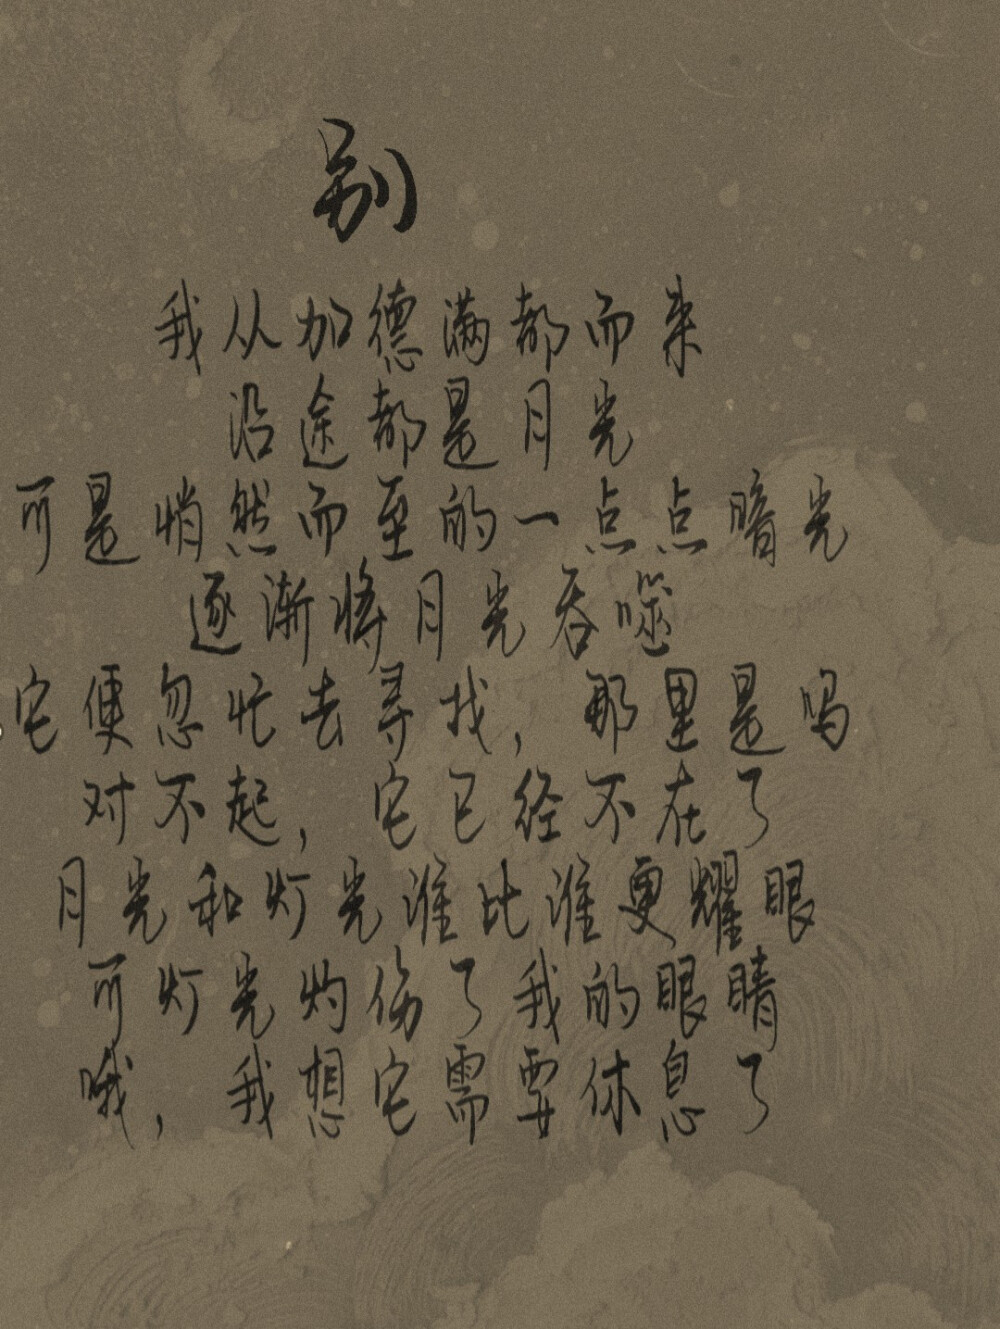 别
我从加德满都而来
沿途都是月光
可是悄然而至的一点点暗光
逐渐将月光吞噬
它便忽忙去寻找，那里是吗
对不起，它已经不在了
月光和灯光谁比谁更耀眼
可灯光灼伤了我的眼睛
哦，我想它需要休息了